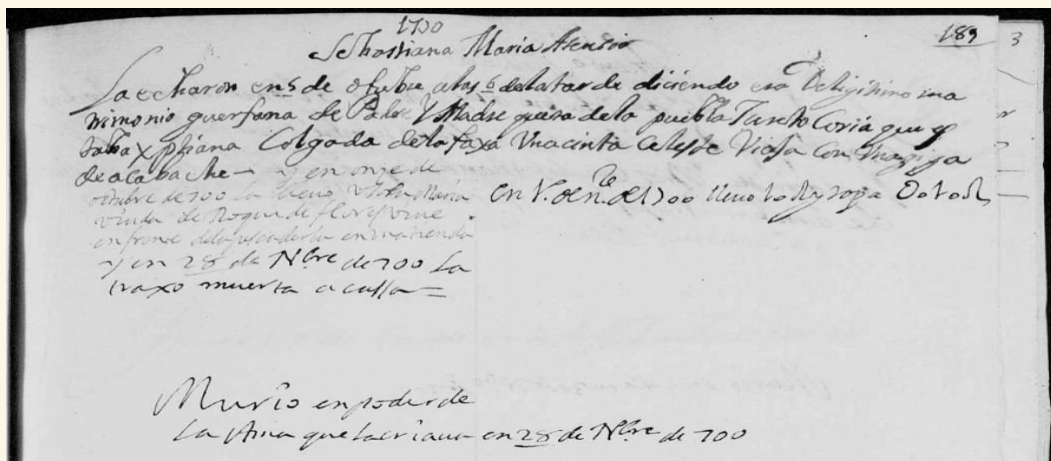 1700
189
3
Sebastiana Maria Asensio
La echaron en 5 de otubre a las 6 de la tarde diciendo era De ligitimo ma
trimonio guerfana de Padre Y Madre quera de la puebla Junto Coria que es
taba xptiana Colgada de la faxa Una cinta celeste Viexa con Una higa
de acabache y en onze de
octubre de 700 la lleuo Maria
viuda de Roque de flores viue
en frente de la en una tienda
y en 28 de Nbre de 700 La
traxo muerta a cassa =
en de 1700 lleuo
Murio en poder de
La Ama que la criaua en 28 de Nbre de 700